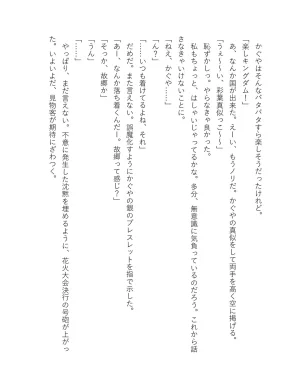 かぐやはそんなバタバタすら楽しそうだったけれど。
「楽しキングダム！」
　あ、なんか国が出来た。えーい、もうノリだ。かぐやの真似をして両手を高く空に掲げる。
「うぇ～～い、彩葉真似っこ～～」
　恥ずかしっ。やらなきゃ良かった。
　私もちょっと、はしゃいじゃってるかな。多分、無意識に気負っているのだろう。これから話
さなきゃいけないことに。
「ねえ、かぐや……」
「ん？」
「……いつも着けてるよね、それ」
　だめだ。まだ言えない。誤魔化すようにかぐやの銀のブレスレットを指で示した。
「あー、なんか落ち着くんだー。故郷って感じ？」
「そっか、故郷か」
「うん」
「……」
　やっぱり、まだ言えない。不意に発生した沈黙を埋めるように、花火大会決行の号砲が上がっ
た。いよいよだ、見物客が期待にざわつく。